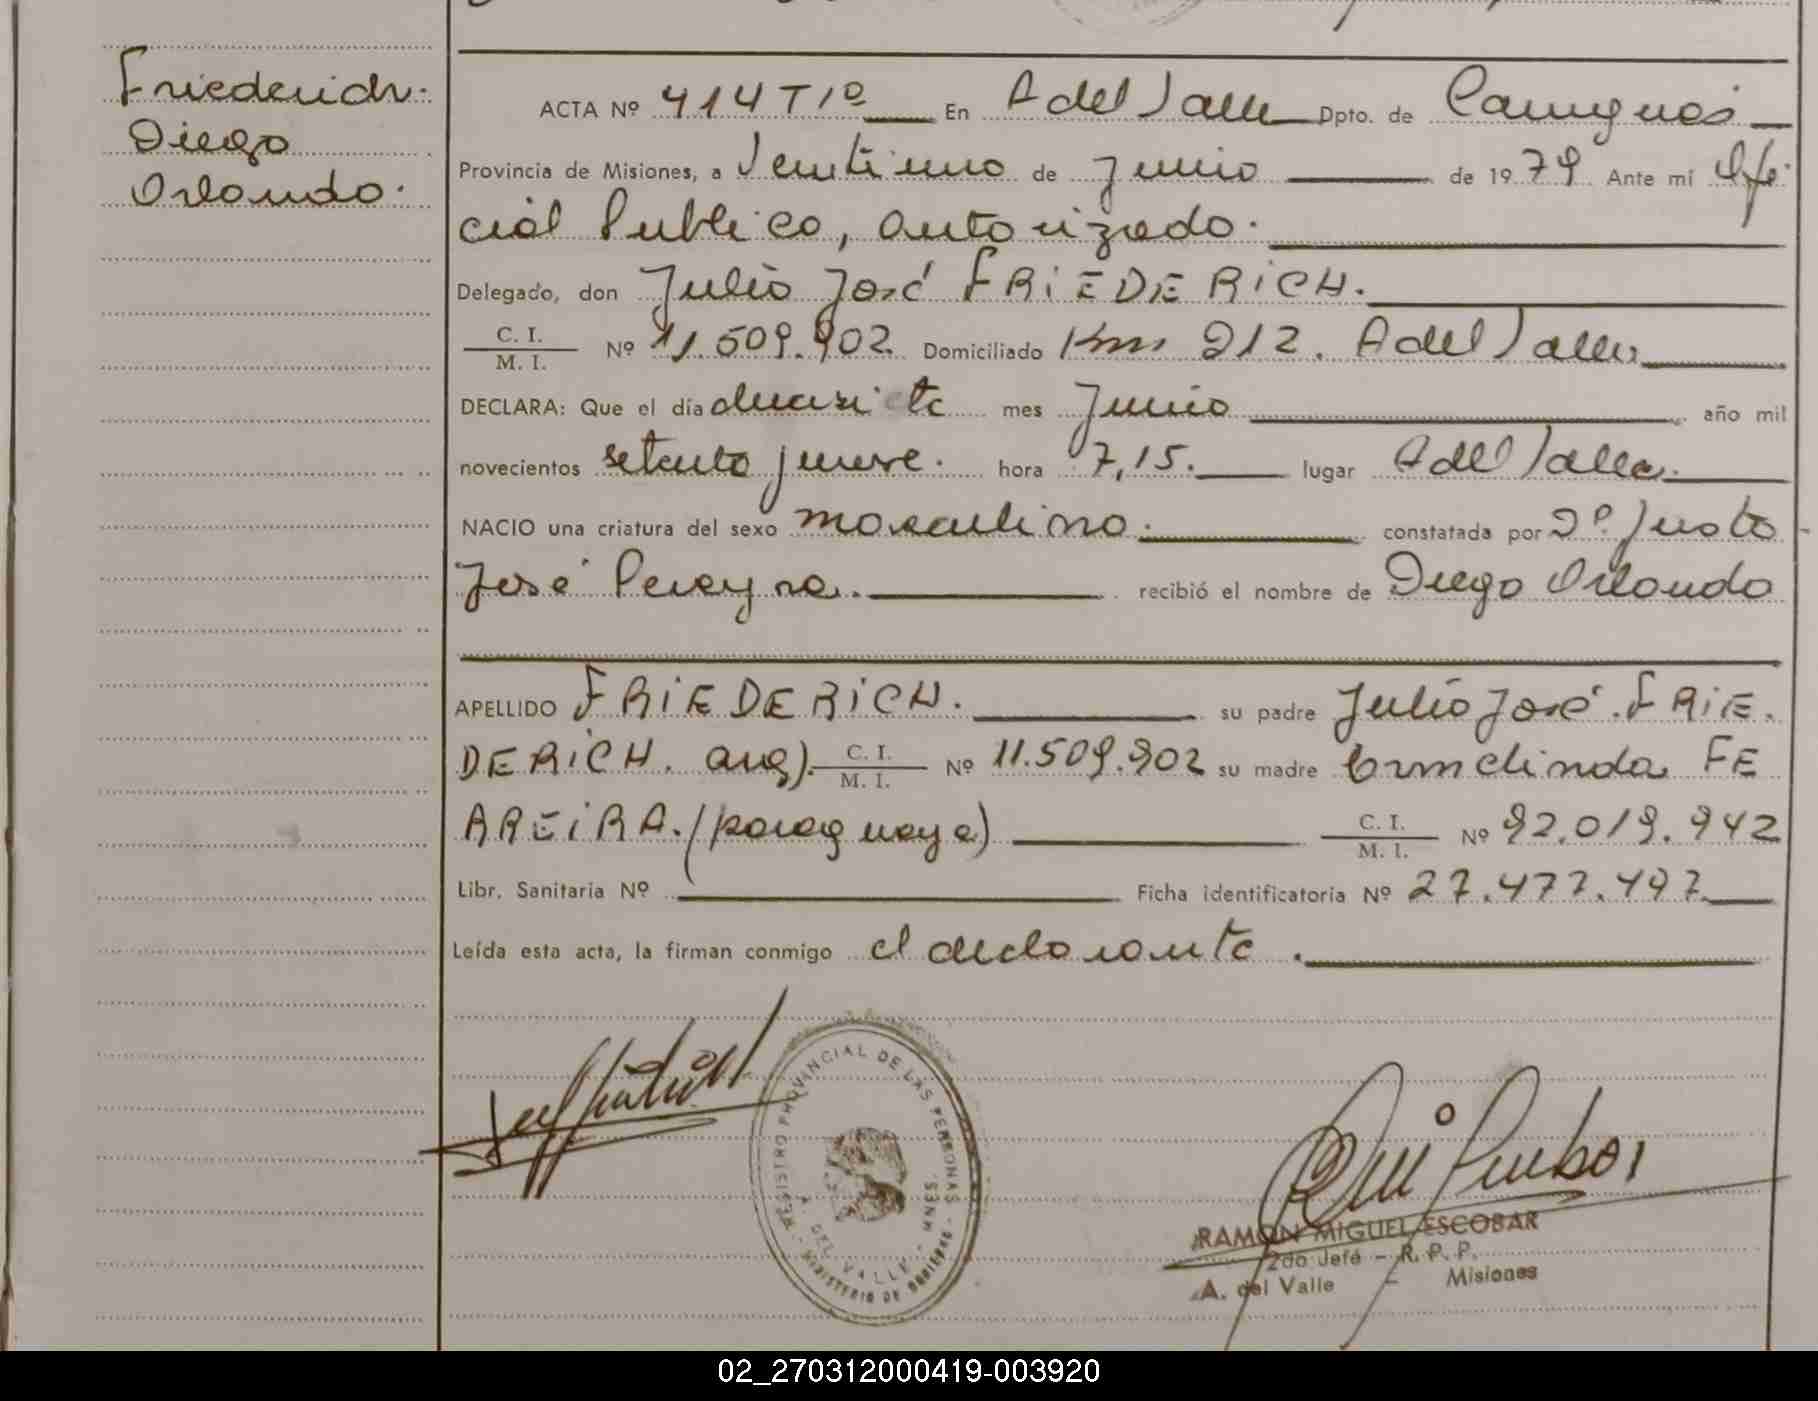 Friederich.
Diego
Orlando.
ACTA Nº 414 Tº 1º En A del Valle Dpto. de Cainguás
Provincia de Misiones, a Veintiuno de Junio de 1979 Ante mi Ofi
cial Publico, autorizado.
Delegado, don Julio José FRIEDERICH.
C. I.
M. I. Nº 11.509.902 Domiciliado Km 212. A del Valle
DECLARA: Que el día diecisiete mes Junio año mil
novecientos setenta y nueve. hora 7,15. lugar A del Valle.
NACIO una criatura del sexo masculino. constatada por Dº. Justo
José Pereyra. recibió el nombre de Diego Orlando
APELLIDO FRIEDERICH. su padre Julio José. FRIE.
DERICH. arg). C. I. M. I. Nº 11.509.902 su madre Ermelinda FE
AREIRA. (paraguaya) C. I. M. I. Nº 92.019.942
Libr. Sanitaria Nº Ficha identificatoria Nº 27.477.497
Leída esta acta, la firman conmigo el declarante.
REGISTRO PROVINCIAL DE LAS PERSONAS
A. DEL VALLE - MNES
MINISTERIO DE GOBIERNO
RAMON MIGUEL ESCOBAR
2do Jefe - R. P. P.
A. del Valle - Misiones
02_270312000419-003920